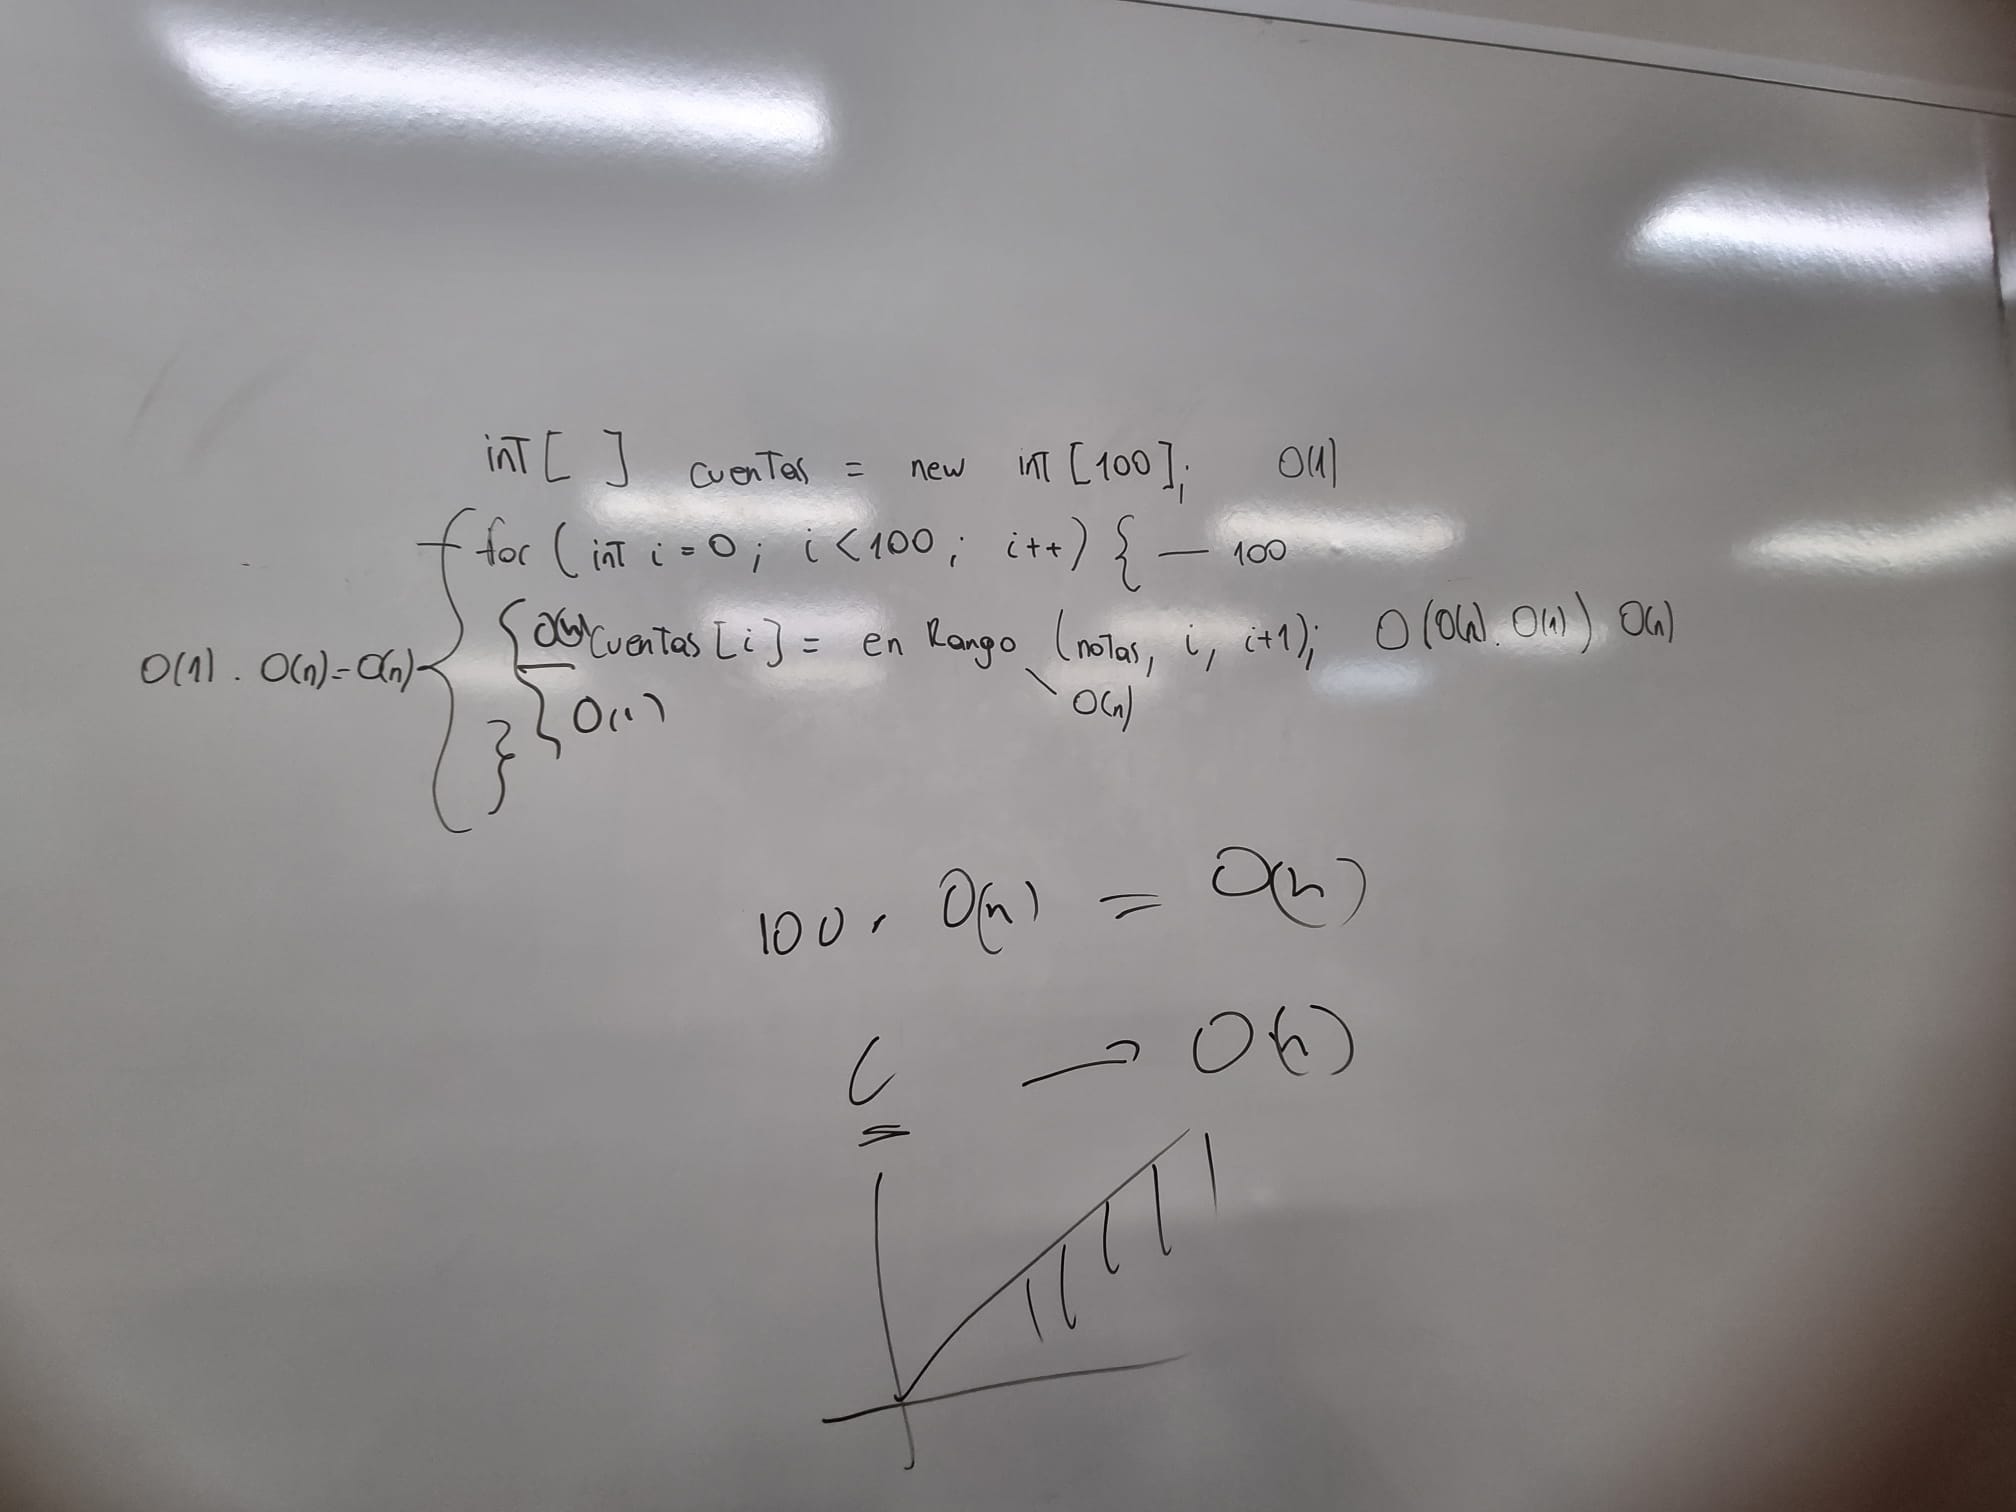 int [ ] cuentas = new int [100]; O(1)
for ( int i = 0 ; i < 100 ; i++) { — 100
O(1) . O(n) = O(n) { O(n) cuentas [i] = en Rango (notas, i, i+1); O(O(n). O(1)) O(n)
} O(1) O(n)
100 . O(n) = O(n)
C → O(n)